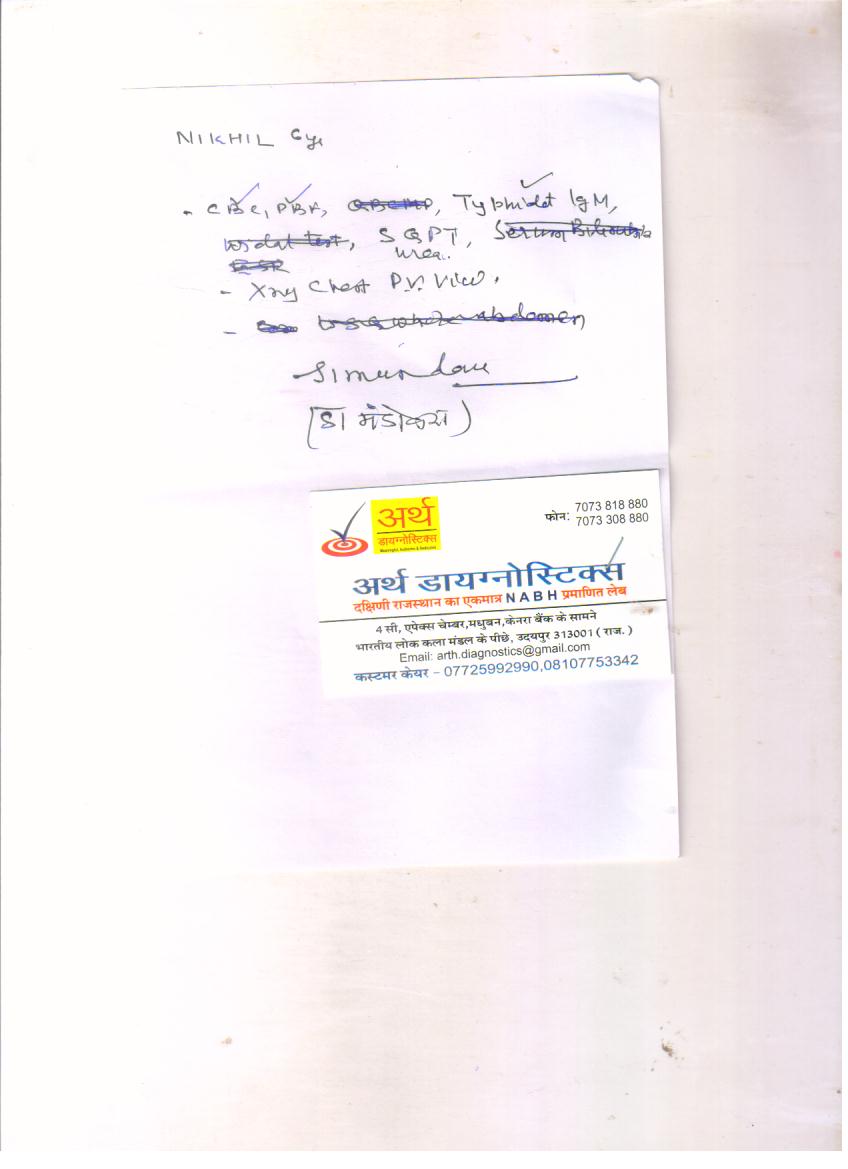 NIKHIL 6yr
- CBC, PBF, QBC MP, Typhidot IgM,
widal test, SGPT, Serum Bilirubin
ESR urea.
- Xray Chest P.V. View.
- USG whole abdomen
(डा मंडोवरा)
अर्थ
डायग्नोस्टिक्स
फोन: 7073 818 880
7073 308 880
अर्थ डायग्नोस्टिक्स
दक्षिणी राजस्थान का एकमात्र NABH प्रमाणित लेब
4 सी, एपेक्स चेम्बर,मधुबन,केनरा बैंक के सामने
भारतीय लोक कला मंडल के पीछे, उदयपुर 313001 ( राज. )
Email: arth.diagnostics@gmail.com
कस्टमर केयर - 07725992990,08107753342